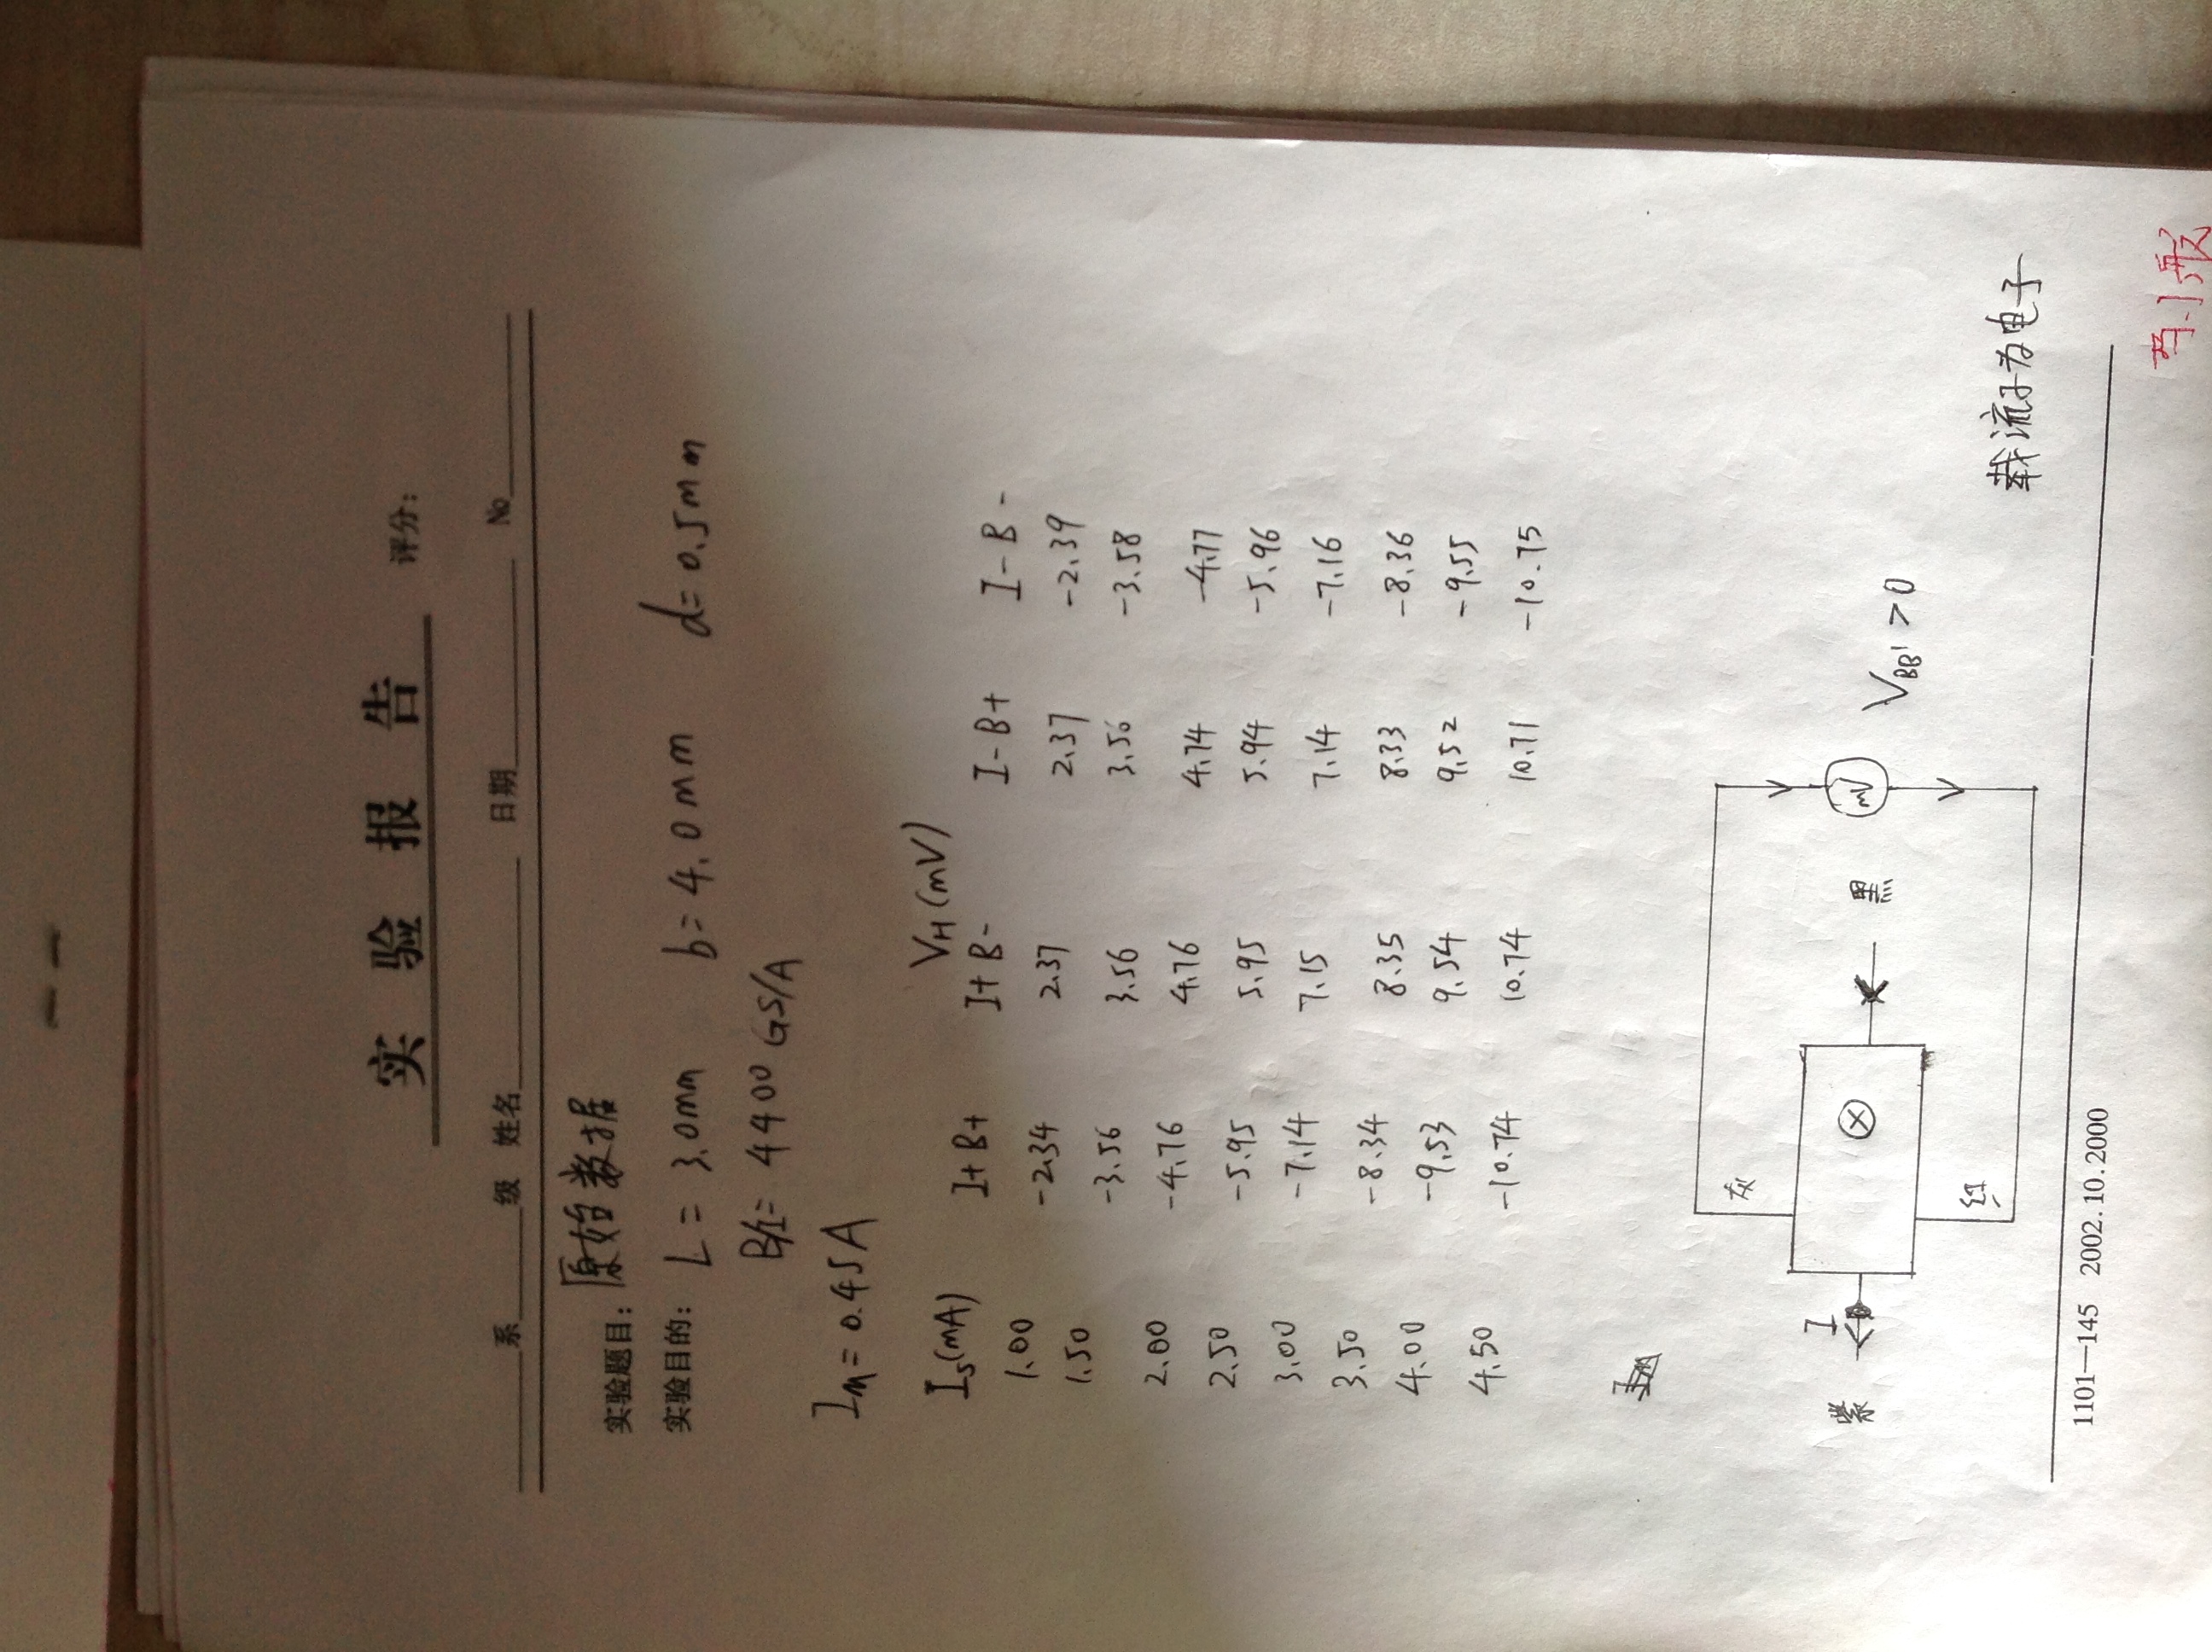 实验报告 评分:
系 级 姓名 日期 No
实验题目: 原始数据
实验目的: L = 3.0mm b = 4.0mm d = 0.5mm
B/I = 4400 GS/A
IM = 0.45A
Is(mA) VH (mV)
I+ B+ I+ B- I- B+ I- B-
1.00 -2.34 2.37 2.37 -2.39
1.50 -3.56 3.56 3.56 -3.58
2.00 -4.76 4.76 4.74 -4.77
2.50 -5.95 5.95 5.94 -5.96
3.00 -7.14 7.15 7.14 -7.16
3.50 -8.34 8.35 8.33 -8.36
4.00 -9.53 9.54 9.52 -9.55
4.50 -10.74 10.74 10.71 -10.75
灰
紫 I 黑 mV VBB' > 0
红
载流子为电子
1101—145 2002.10.2000